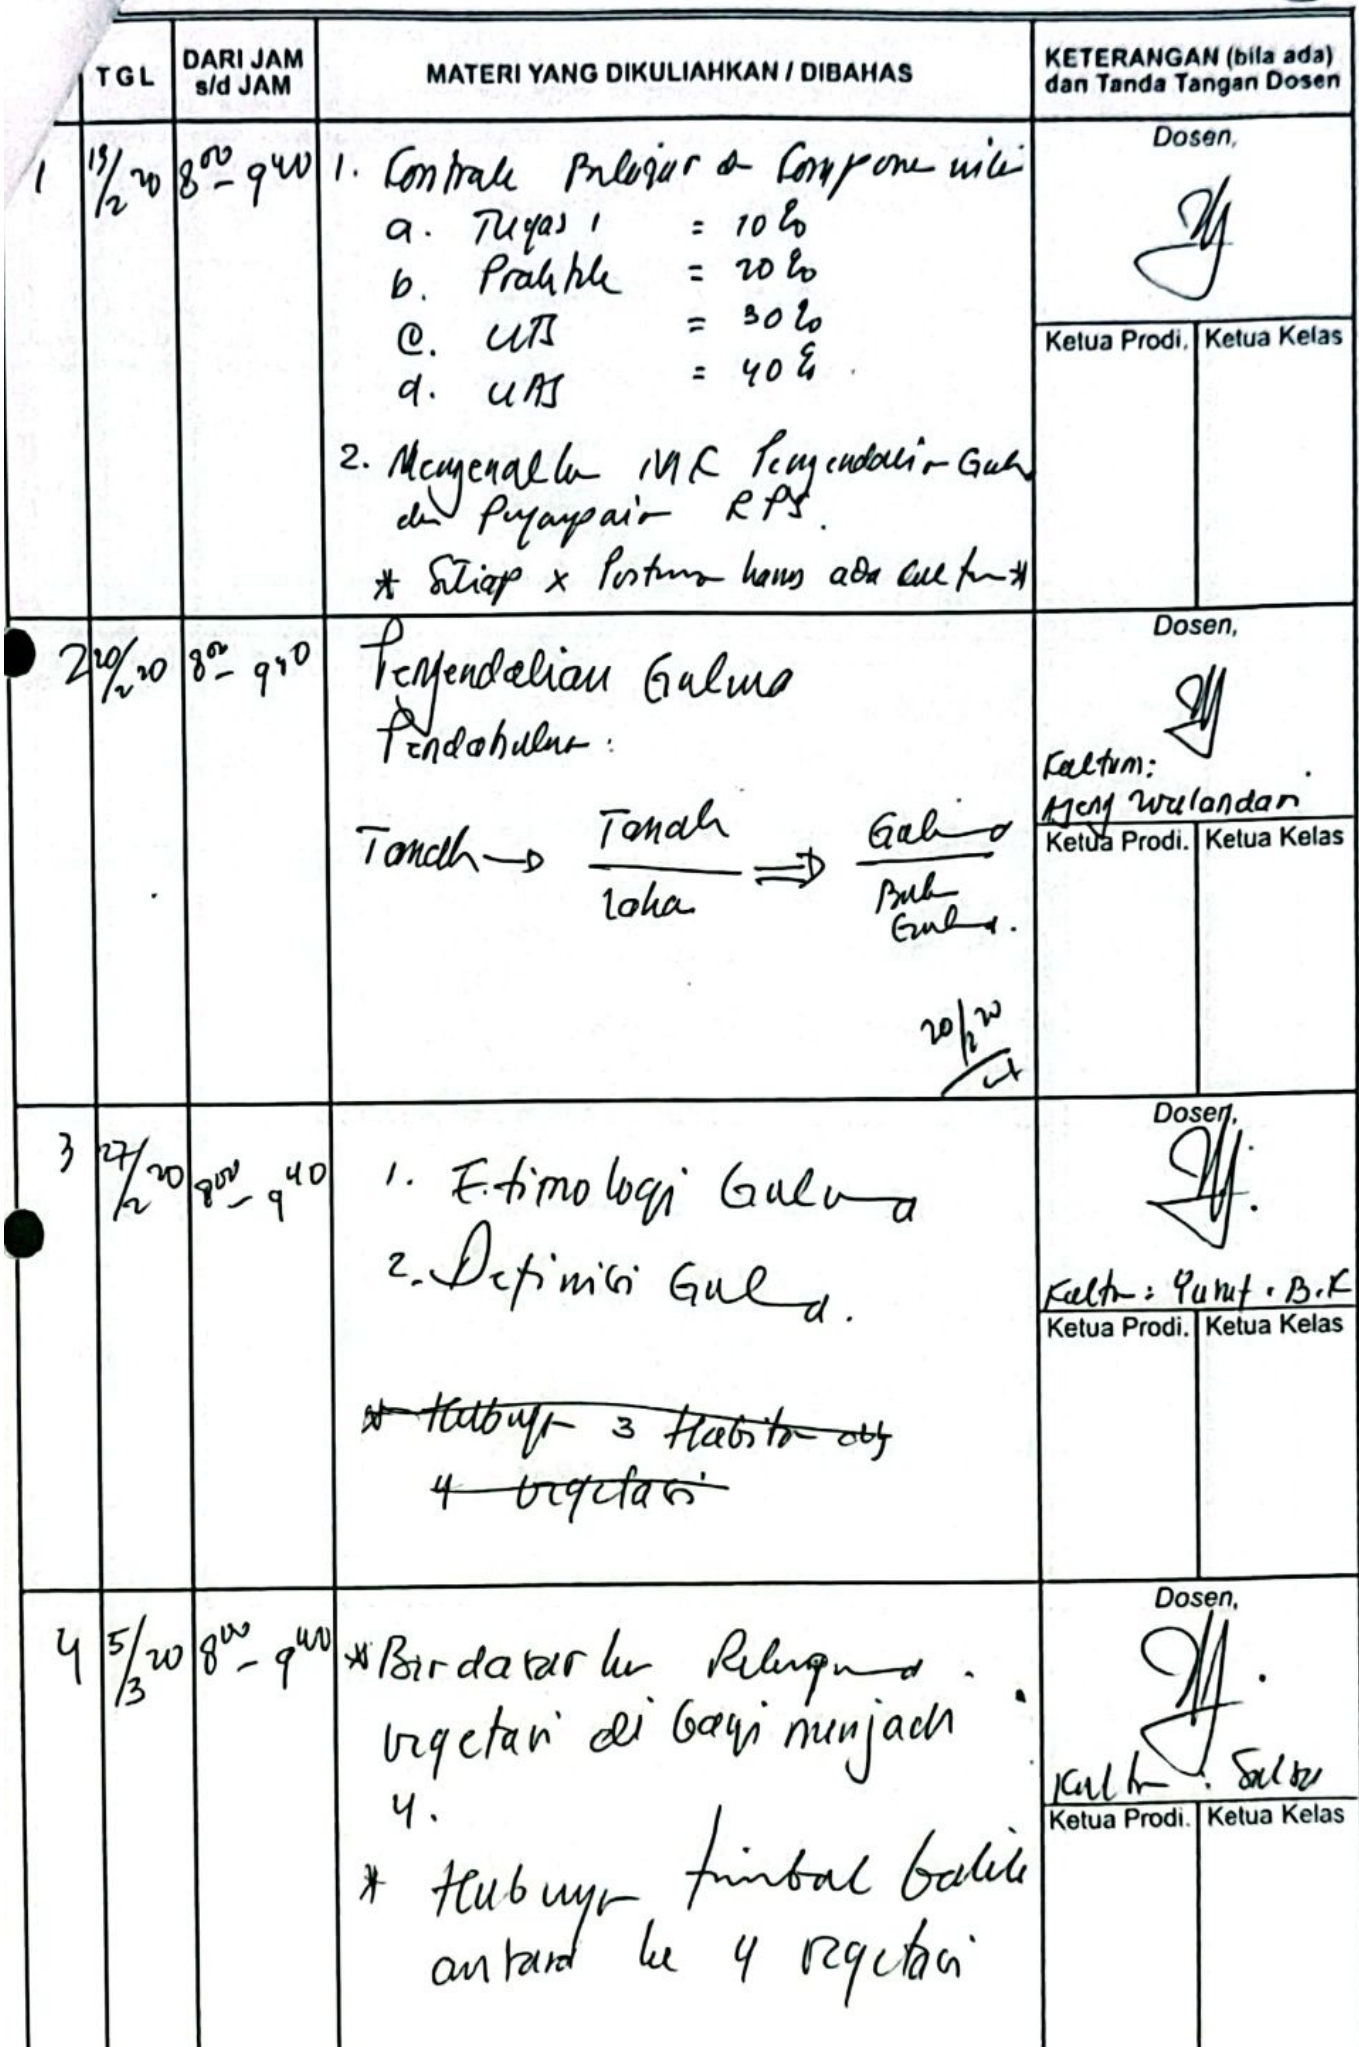 TGL
DARI JAM
s/d JAM
MATERI YANG DIKULIAHKAN / DIBAHAS
KETERANGAN (bila ada)
dan Tanda Tangan Dosen
1
8⁰⁰ - 9⁴⁰
1. Kontrak Belajar & Kompone nilai
a. Tugas 1 = 10%
b. Praktik = 20%
c. UTS = 30%
d. UAS = 40%
2. Mengenalkan MK Pengendalian Gulma
dan Penyampaian RPS.
* Setiap x harus ada kultum *
Dosen,
Ketua Prodi,
Ketua Kelas
2
20/2 20
8⁰⁰ - 9⁴⁰
Pengendalian Gulma
Pendahuluan:
Tanah → Tanah ⇒ Gulma
Bukan
Gulma.
20/2 20
Dosen,
Kultum:
Ajeng Wulandari
Ketua Prodi.
Ketua Kelas
3
27/2 20
8⁰⁰ - 9⁴⁰
1. Etimologi Gulma
2. Definisi Gulma.
* Hubungan 3 Habitat
4 vegetasi
Dosen,
Kultum : B.K
Ketua Prodi.
Ketua Kelas
4
5/3 20
8⁰⁰ - 9⁴⁰
* Berdasarkan
vegetasi di bagi menjadi
4.
* Hubungan timbal balik
antara ke 4 vegetasi
Dosen,
Kultum :
Ketua Prodi.
Ketua Kelas